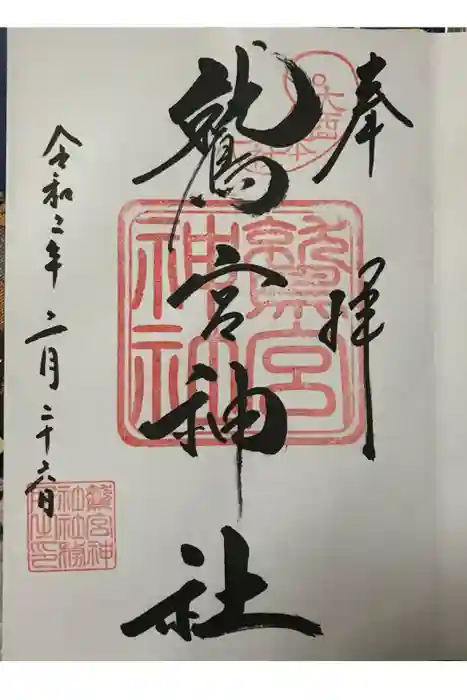 奉拝
鷲宮神社
令和二年二月二十六日
鷲宮
神社
鷲宮神
社社務
所之印